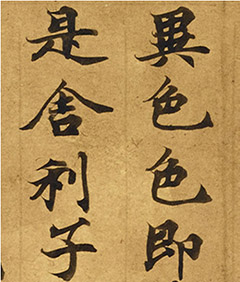 異色色即
是舍利子